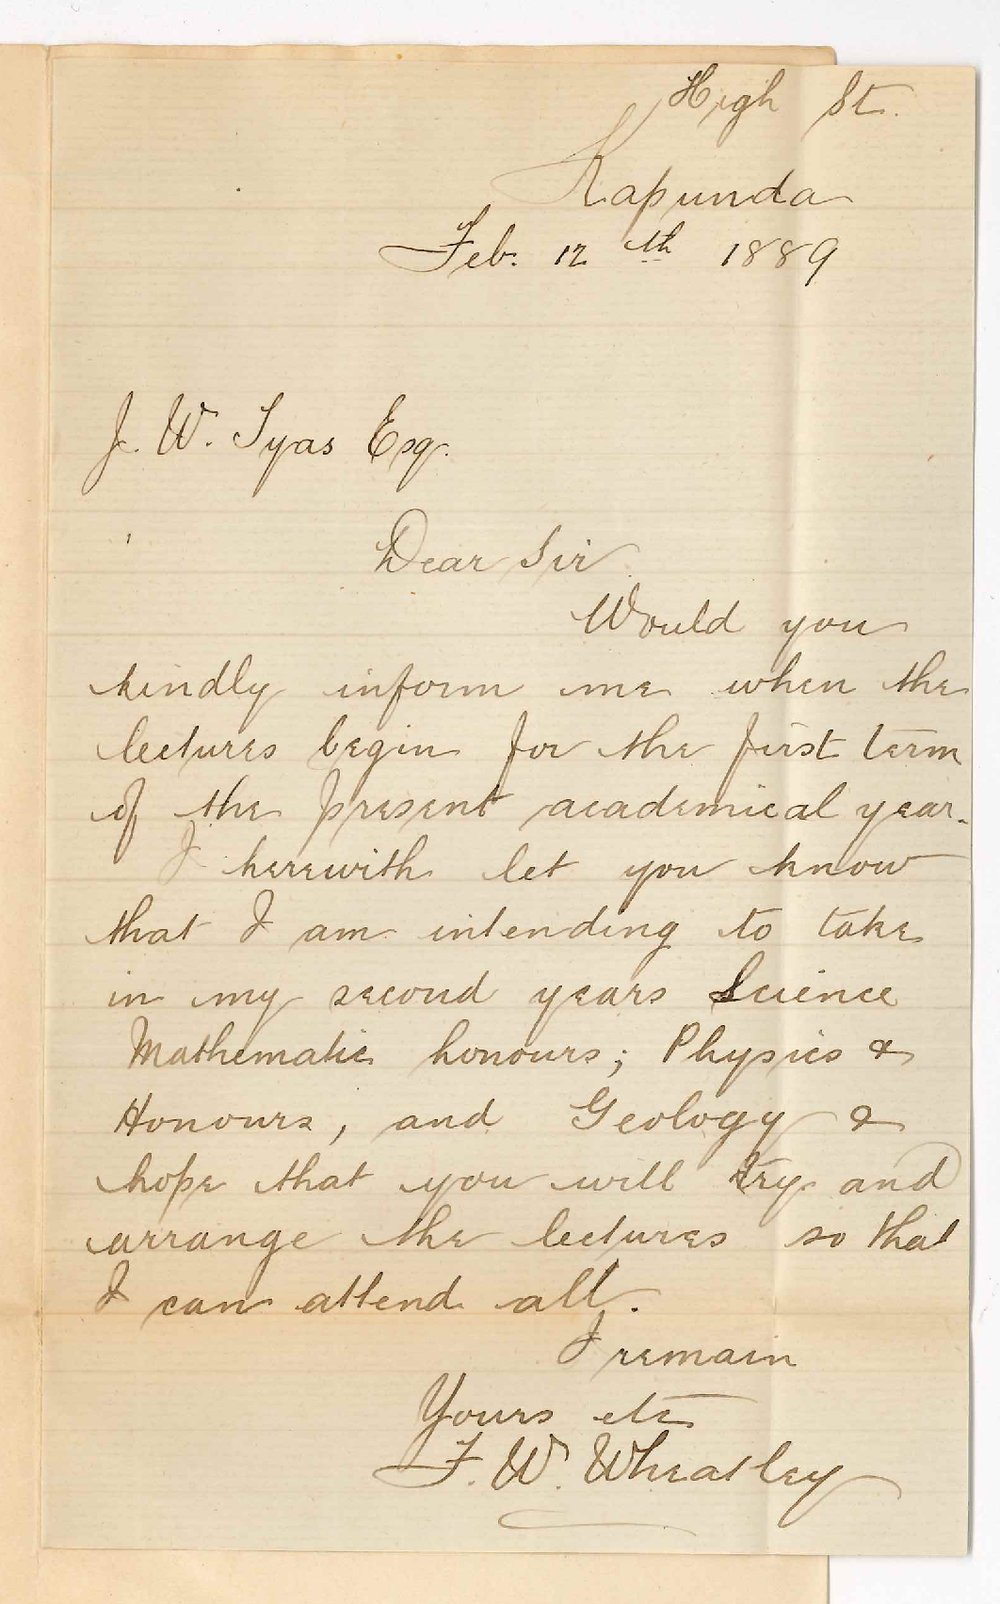 High St.
Kapunda
Feb. 12th 1889
J. W. Tyas Esq.
Dear Sir
Would you
kindly inform me when the
lectures begin for the first term
of the present academical year.
I herewith let you know
that I am intending to take
in my second years Science
Mathematic honours; Physics &
Honours, and Geology &
hope that you will try and
arrange the lectures so that
I can attend all.
I remain
Yours etc
F. W. Wheatley